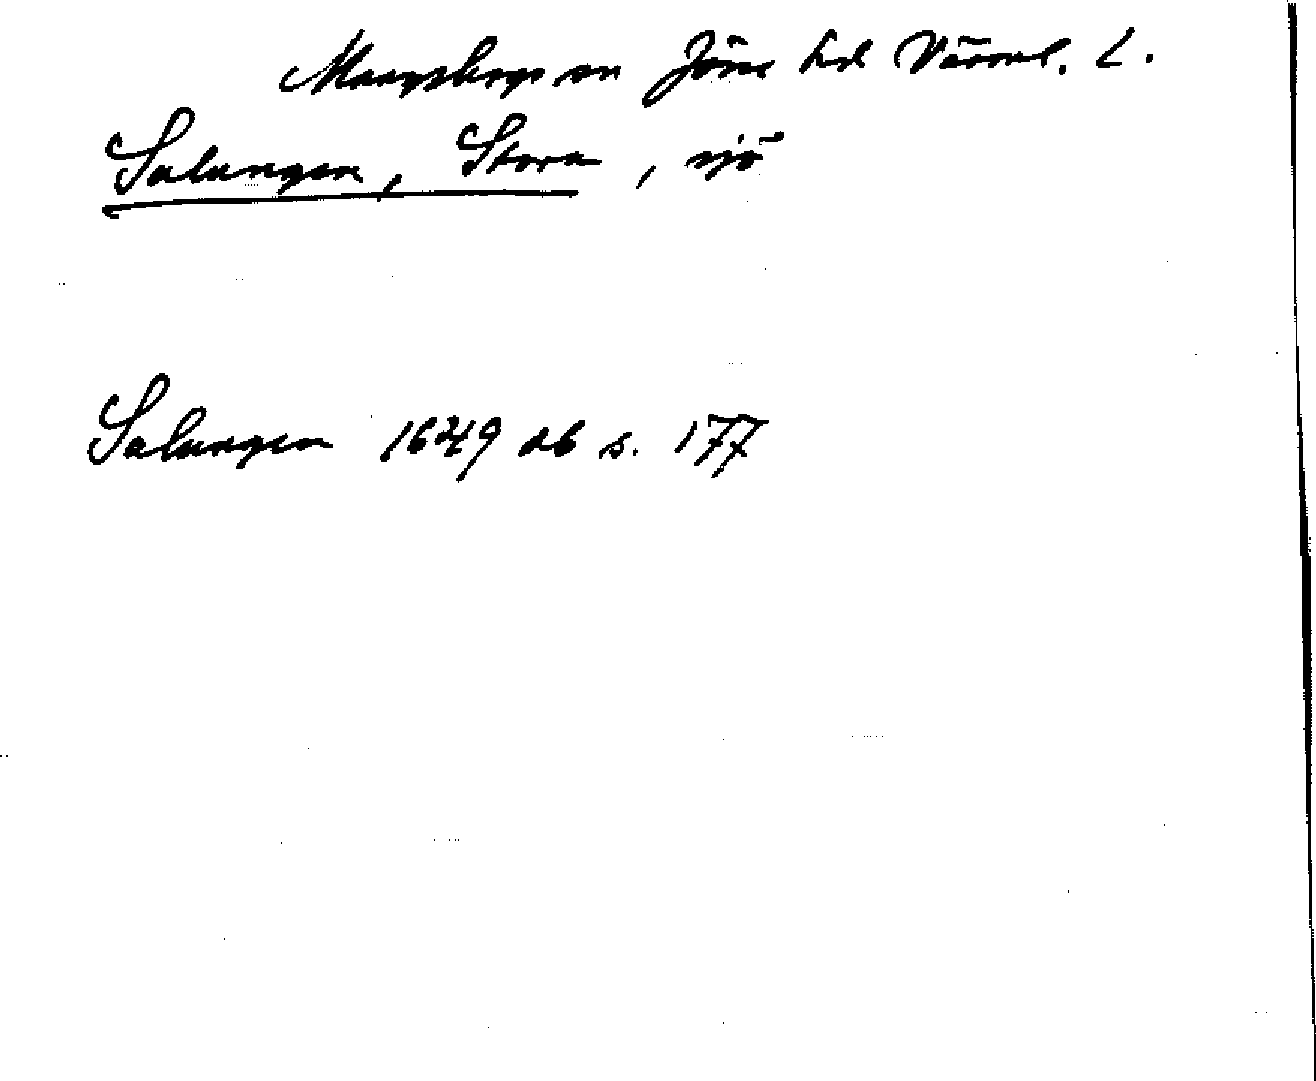 Mangskogs sn Jösse hd Värml. L.
Salungen, Stora, sjö
Salungen 1649 db s. 177